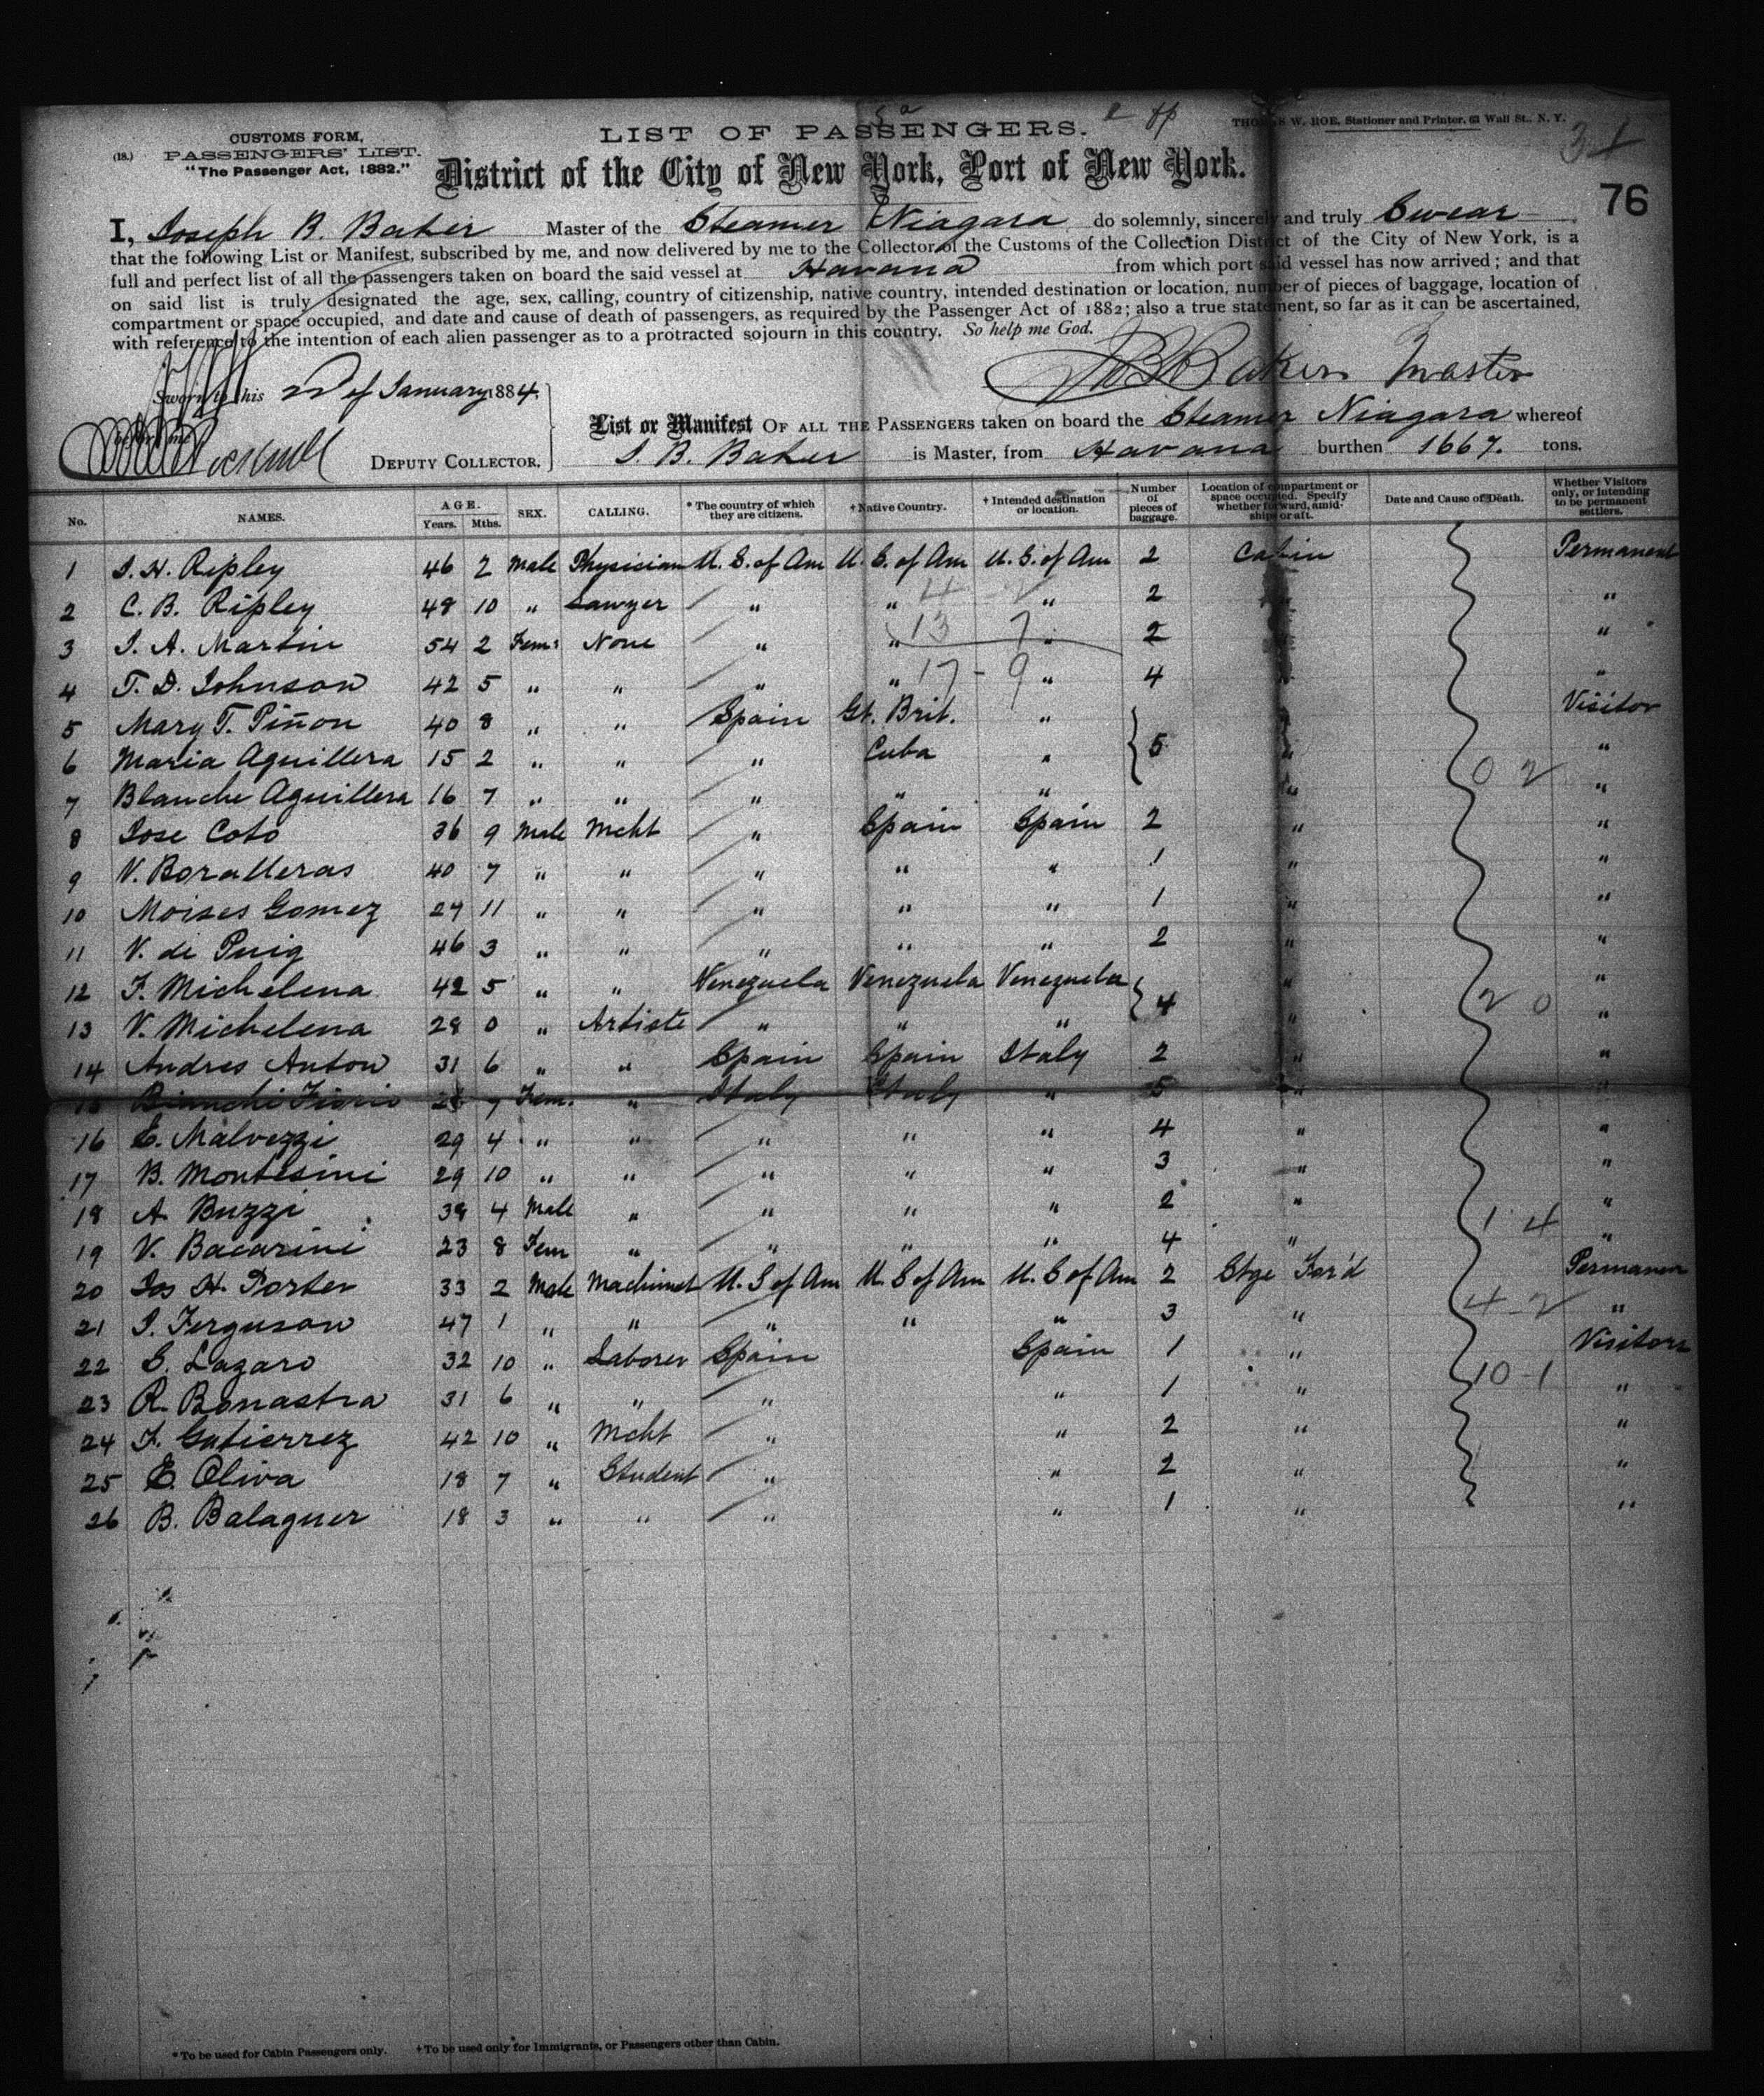 CUSTOMS FORM,
(18.) PASSENGERS' LIST.
"The Passenger Act, 1882."
LIST OF PASSENGERS.
THOMAS W. ROE, Stationer and Printer, 63 Wall St., N. Y.
District of the City of New York, Port of New York.
76
I, Joseph B. Baker Master of the Steamer Niagara do solemnly, sincerely and truly Swear
that the following List or Manifest, subscribed by me, and now delivered by me to the Collector of the Customs of the Collection District of the City of New York, is a
full and perfect list of all the passengers taken on board the said vessel at Havana from which port said vessel has now arrived; and that
on said list is truly designated the age, sex, calling, country of citizenship, native country, intended destination or location, number of pieces of baggage, location of
compartment or space occupied, and date and cause of death of passengers, as required by the Passenger Act of 1882; also a true statement, so far as it can be ascertained,
with reference to the intention of each alien passenger as to a protracted sojourn in this country. So help me God.
J B Baker Master
Sworn to this 22 of January 1884.
before me
DEPUTY COLLECTOR.
List or Manifest OF ALL THE PASSENGERS taken on board the Steamer Niagara whereof
J. B. Baker is Master, from Havana burthen 1667. tons.
No. NAMES. AGE. Years. Mths. SEX. CALLING. * The country of which they are citizens. † Native Country. † Intended destination or location. Number of pieces of baggage. Location of compartment or space occupied. Specify whether forward, amidships or aft. Date and Cause of Death. Whether Visitors only, or intending to be permanent settlers.
1 J. H. Ripley 46 2 Male Physician U. S. of Am U. S. of Am U. S. of Am 2 Cabin Permanent
2 C. B. Ripley 48 10 " Lawyer " " " 2 " "
3 J. A. Martin 54 2 Fem: None " " " 2 " "
4 T. D. Johnson 42 5 " " " " " 4 " "
5 Mary T. Piñon 40 8 " " Spain Gt. Brit. " " Visitor
6 Maria Aguillera 15 2 " " " Cuba " 5 " "
7 Blanche Aguillera 16 7 " " " " " " "
8 Jose Coto 36 9 Male Mcht " Spain Spain 2 " "
9 V. Boralleras 40 7 " " " " " 1 " "
10 Moises Gomez 27 11 " " " " " 1 " "
11 V. de Puig 46 3 " " " " " 2 " "
12 F. Michelena 42 5 " " Venezuela Venezuela Venezuela " "
13 V. Michelena 28 0 " Artiste " " " 4 " "
14 Andres Anton 31 6 " " Spain Spain Italy 2 " "
15 Bianchi Fiorio 7 Fem. " Italy Italy " 5 " "
16 E. Malvezzi 29 4 " " " " " 4 " "
17 B. Montesini 29 10 " " " " " 3 " "
18 A. Buzzi 38 4 Male " " " " 2 " "
19 V. Bacarini 23 8 Fem " " " " 4 " "
20 Jos H. Porter 33 2 Male Machinist U. S of Am U. S of Am U. S of Am 2 Stge For'd Permanen
21 J. Ferguson 47 1 " " " " " 3 " "
22 S. Lazaro 32 10 " Laborer Spain Spain 1 " Visitors
23 R. Bonastra 31 6 " " " " 1 " "
24 F. Gutierrez 42 10 " Mcht " " 2 " "
25 E. Oliva 18 7 " Student " " 2 " "
26 B. Balaguer 18 3 " " " " 1 " "
* To be used for Cabin Passengers only. † To be used only for Immigrants, or Passengers other than Cabin.